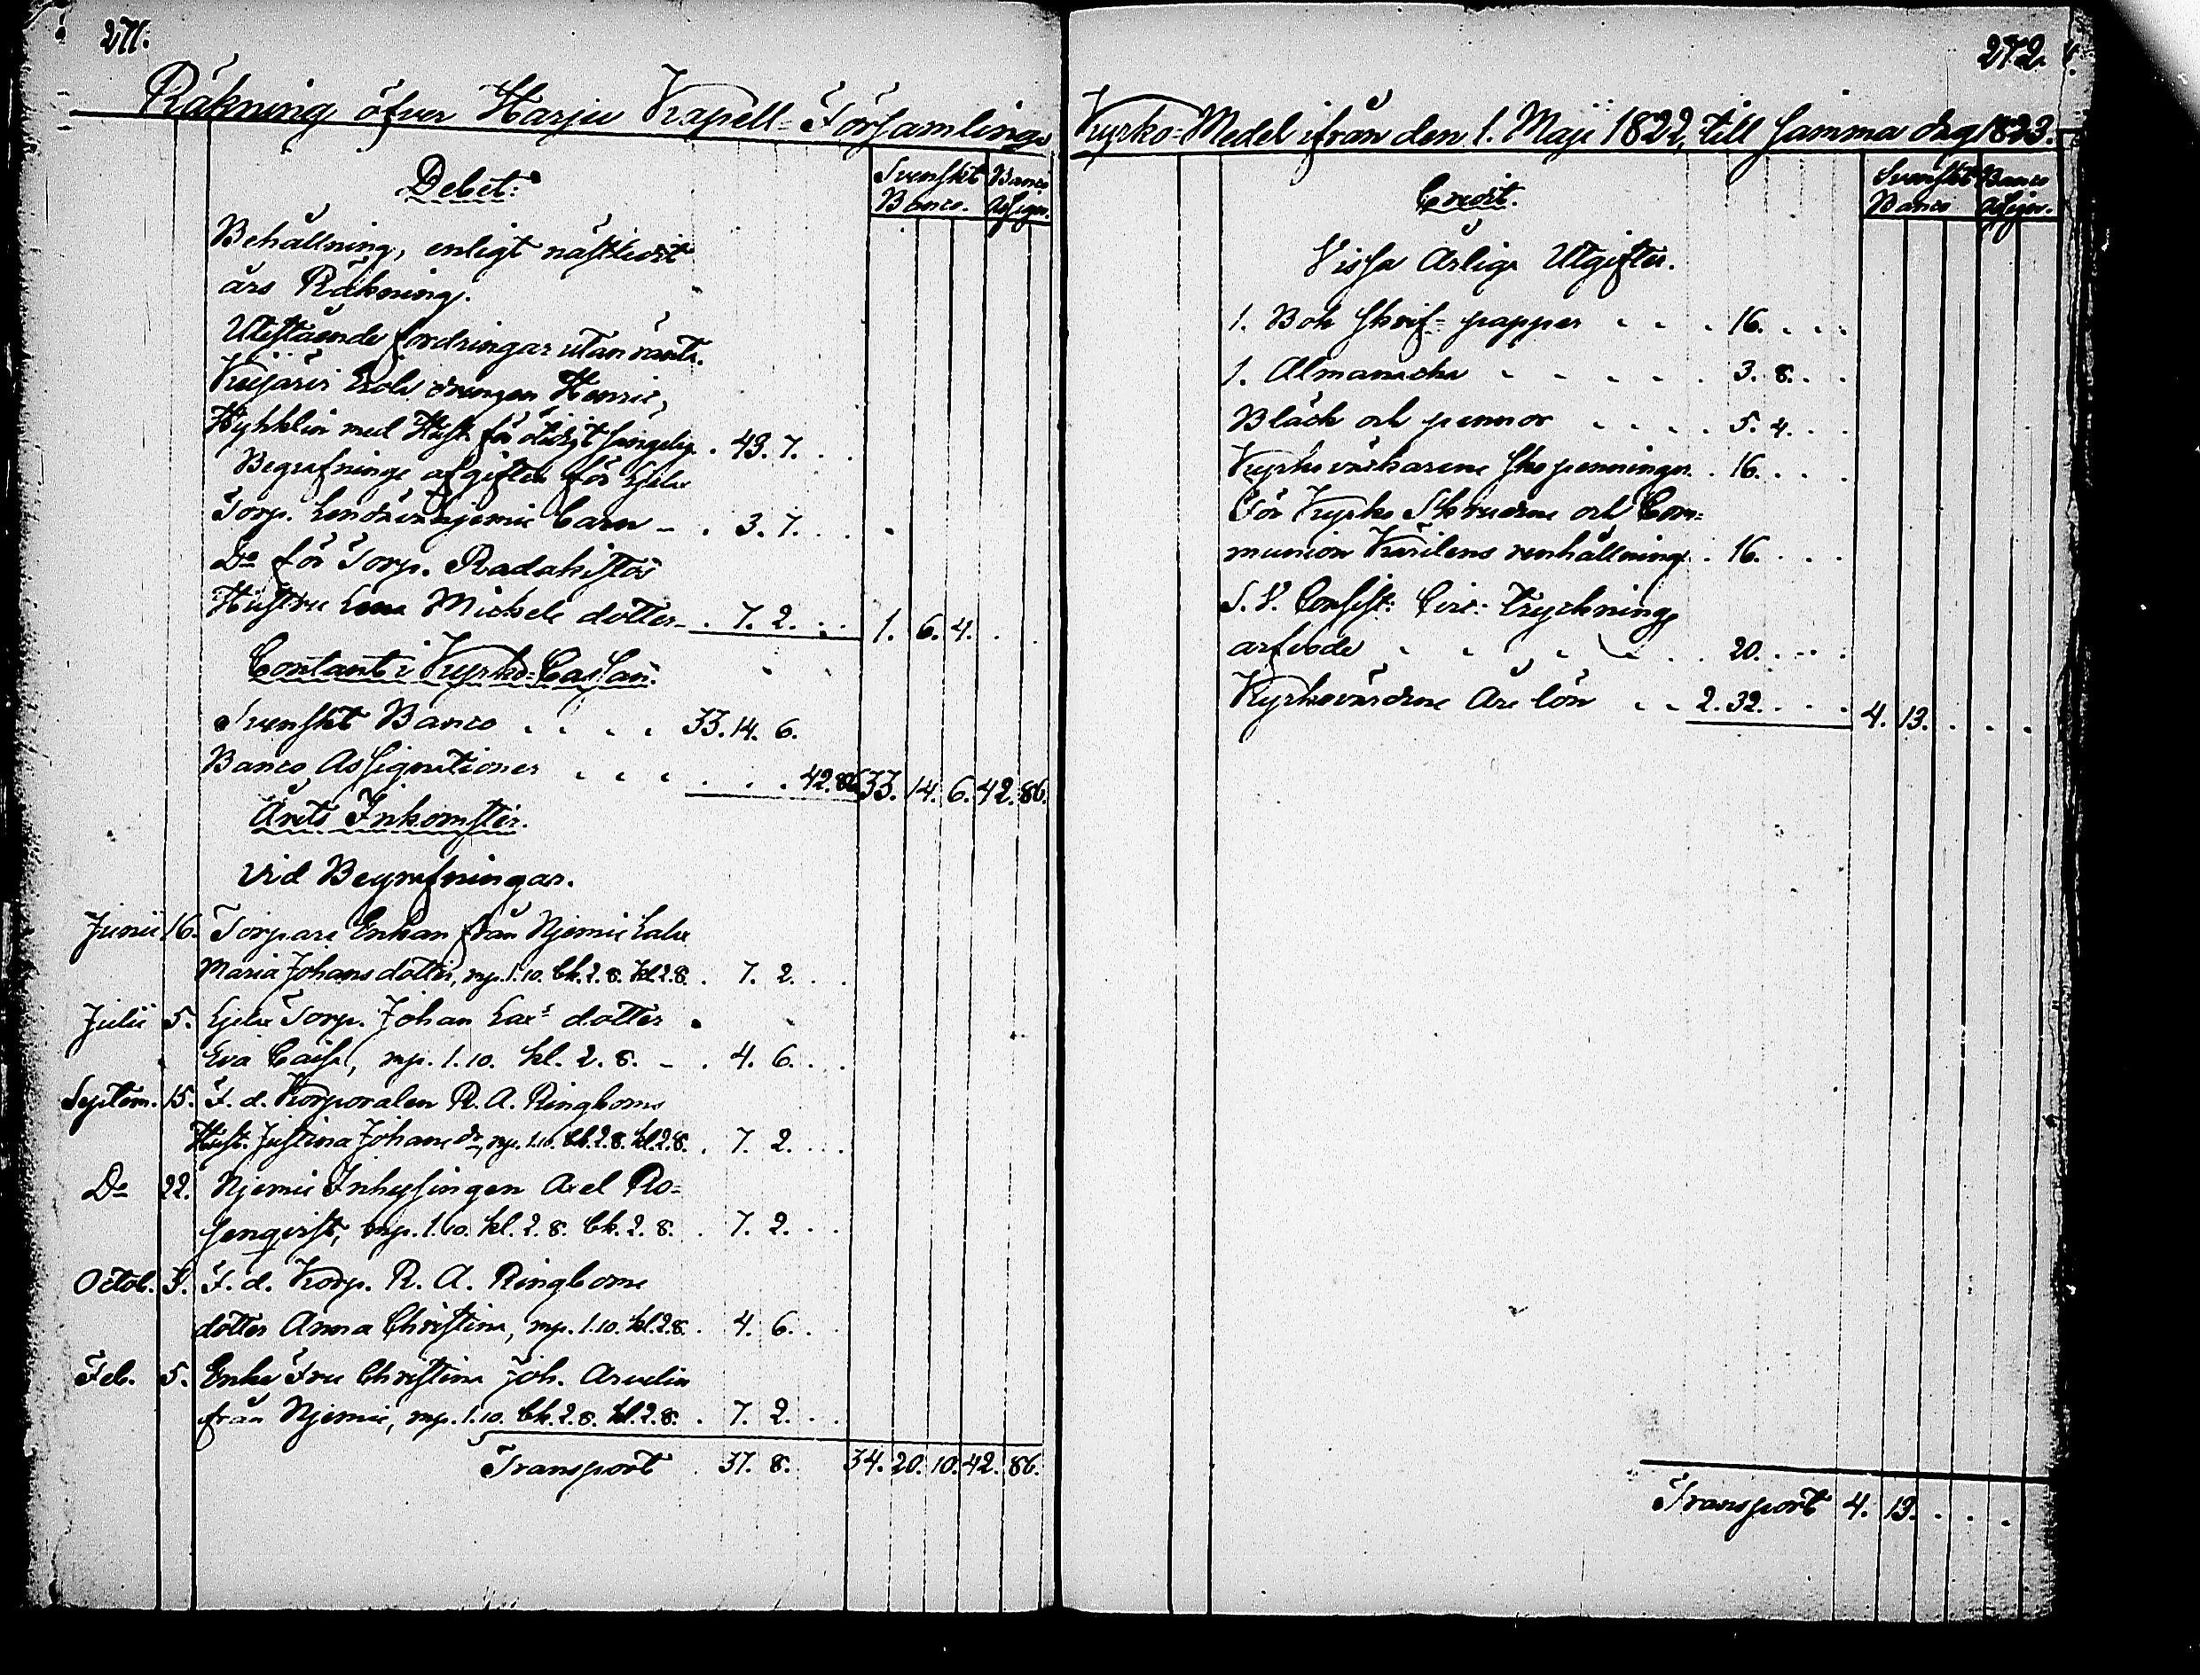 271.
Räkning öfver Harju Kapell-Församlings
Debet:
Svenskt Banco
Banco. Assign.
Behållning, enligt nästledit
års Räkning.
Utestående fordringar utan ränta.
drengen Henric
med Hust. för . 43. 7. . .
Begrafnings afgiften för
Torp. barn - . 3. 7. . .
Do för Torp. Radakistos
Hustru Lena Michels dotter - . 7. 2. . . 1. 6. 4. . .
Contant i Kyrko-Cassan.
Svenskt Banco . . . . 33. 14. 6.
Banco Assignationer . . . . . . 42. 86. 33. 14. 6. 42. 86.
Årets Inkomster.
vid Begrafningar.
Junii 16. Torpare Enkan från Njemis
Maria Johans dotter, mp. 1. 10. bk. 2. 8. kl. 2. 8. . 7. 2. . .
Julii 5. Torp. Johan dotter
Eva Caisa, mp. 1. 10. kl. 2. 8. - . 4. 6. . .
Septem. 15. F. d. Korporalen R. A. Ringboms
Hust. Justina Johans dr, mp. 1. 10. bk. 2. 8. kl. 2. 8. . 7. 2. . .
Do 22. Njemis Inhysingen Axel Ro=
senqvist, mp. 1. 10. kl. 2. 8. bk. 2. 8. . 7. 2. . .
Octob. 3. F. d. Korp. R. A. Ringboms
dotter Anna Christina, mp. 1. 10. kl. 2. 8. . 4. 6. . .
Feb. 5. Enke Fru Christina Joh. Arvelin
från Njemis, mp. 1. 10. bk. 2. 8. kl. 2. 8. . 7. 2. . .
Transport . 37. 8. 34. 20. 10. 42. 86.
272.
Kyrko-Medel ifrån den 1. Maji 1822, till samma dag 1823.
Credit.
Svenskt Banco
Banco Assign.
Vissa Årliga Utgifter.
1. Bok Skrif-papper . . . 16. . . .
1. Almanacha . . . . . 3. 8. . .
Bläck och pennor . . . . 5. 4. . .
Kyrkoväktarens skopenningar . 16. . . .
För Kyrko Skruden och Com=
munion Kärilens renhållning . 16. . . .
S. V. Consist: Circ: Trycknings
arfvode . . . . . . 20. . . .
Kyrkovärdens Års lön . . 2. 32. . . . 4. 13. . . .
Transport 4. 13. . . .